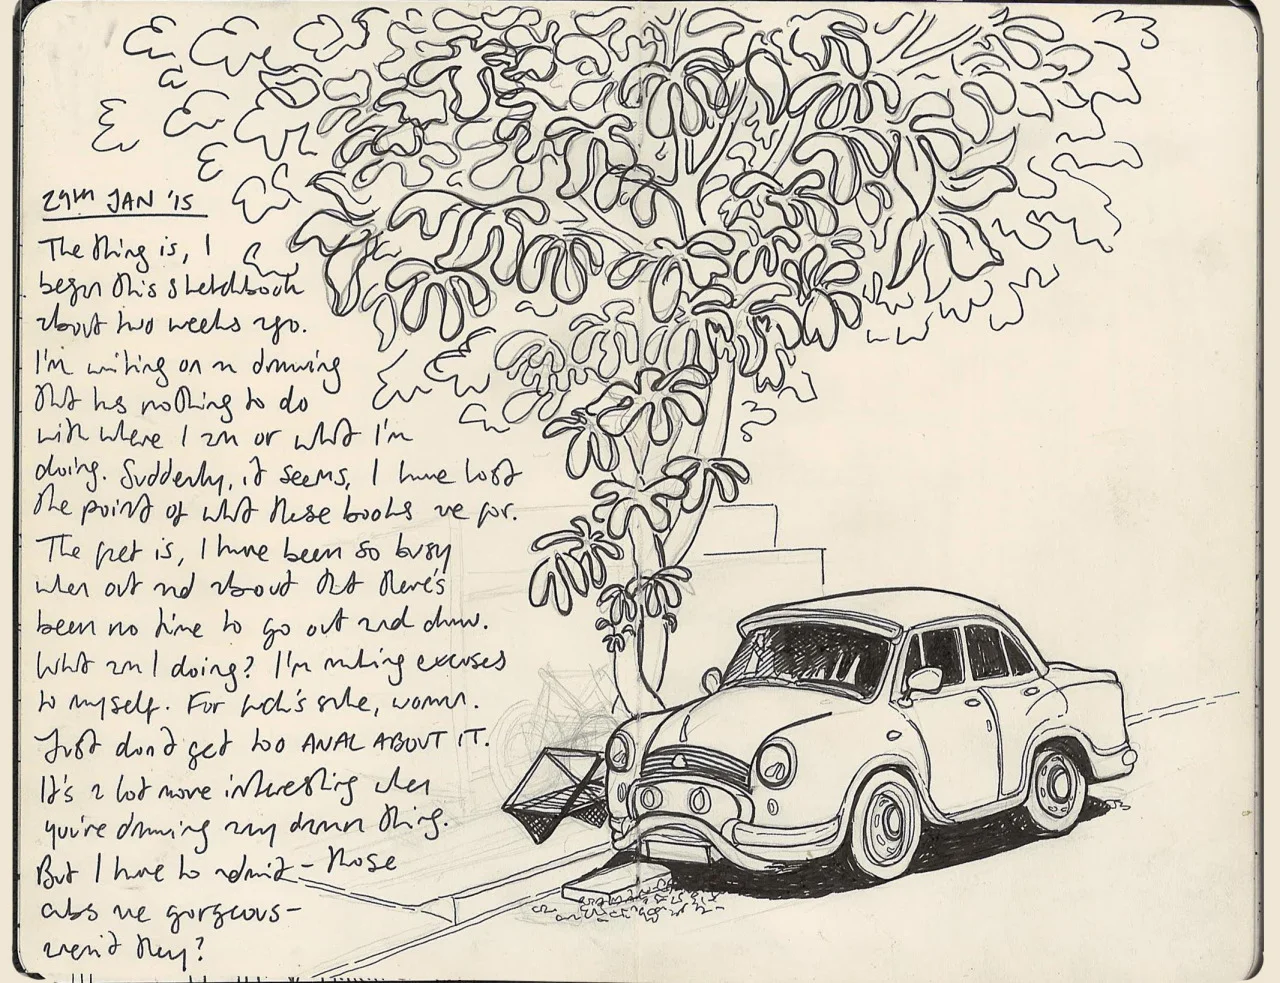 29TH JAN '15
The thing is, I
began this sketchbook
about two weeks ago.
I'm writing on a drawing
that has nothing to do
with where I am or what I'm
doing. Suddenly, it seems, I have lost
the point of what these books are for.
The fact is, I have been so busy
when out and about that there's
been no time to go out and draw.
What am I doing? I'm making excuses
to myself. For fuck's sake, woman.
Just don't get too ANAL ABOUT IT.
It's a lot more interesting when
you're drawing any damn thing.
But I have to admit – those
cabs are gorgeous –
aren't they?